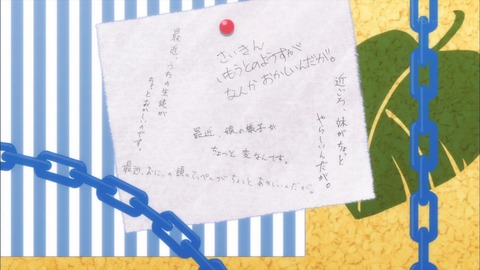 さいきん
いもうとのようすが
なんか おかしいんだが。
近ごろ、妹がちょいと
やらしいんだが。
最近、うちの生徒が
ちょっとおかしいのです。
最近、娘の様子が
ちょっと 変なんです。
最近、おにぃの頭のてっぺんがちょっとおかしいんだが。